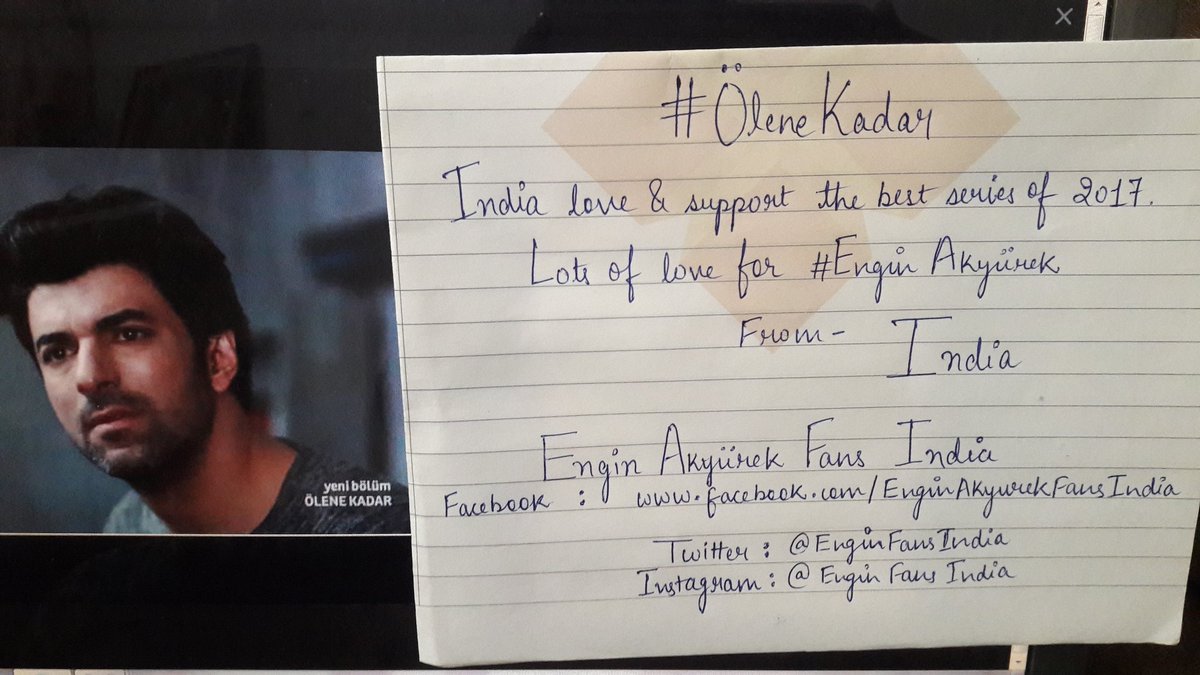 #Ölene Kadar
India love & support the best series of 2017.
Lots of love for #Engin Akyürek
From - India
Engin Akyürek Fans India
Facebook : www.facebook.com/EnginAkyurekFansIndia
Twitter : @EnginFansIndia
Instagram : @ Engin Fans India
yeni bölüm
ÖLENE KADAR